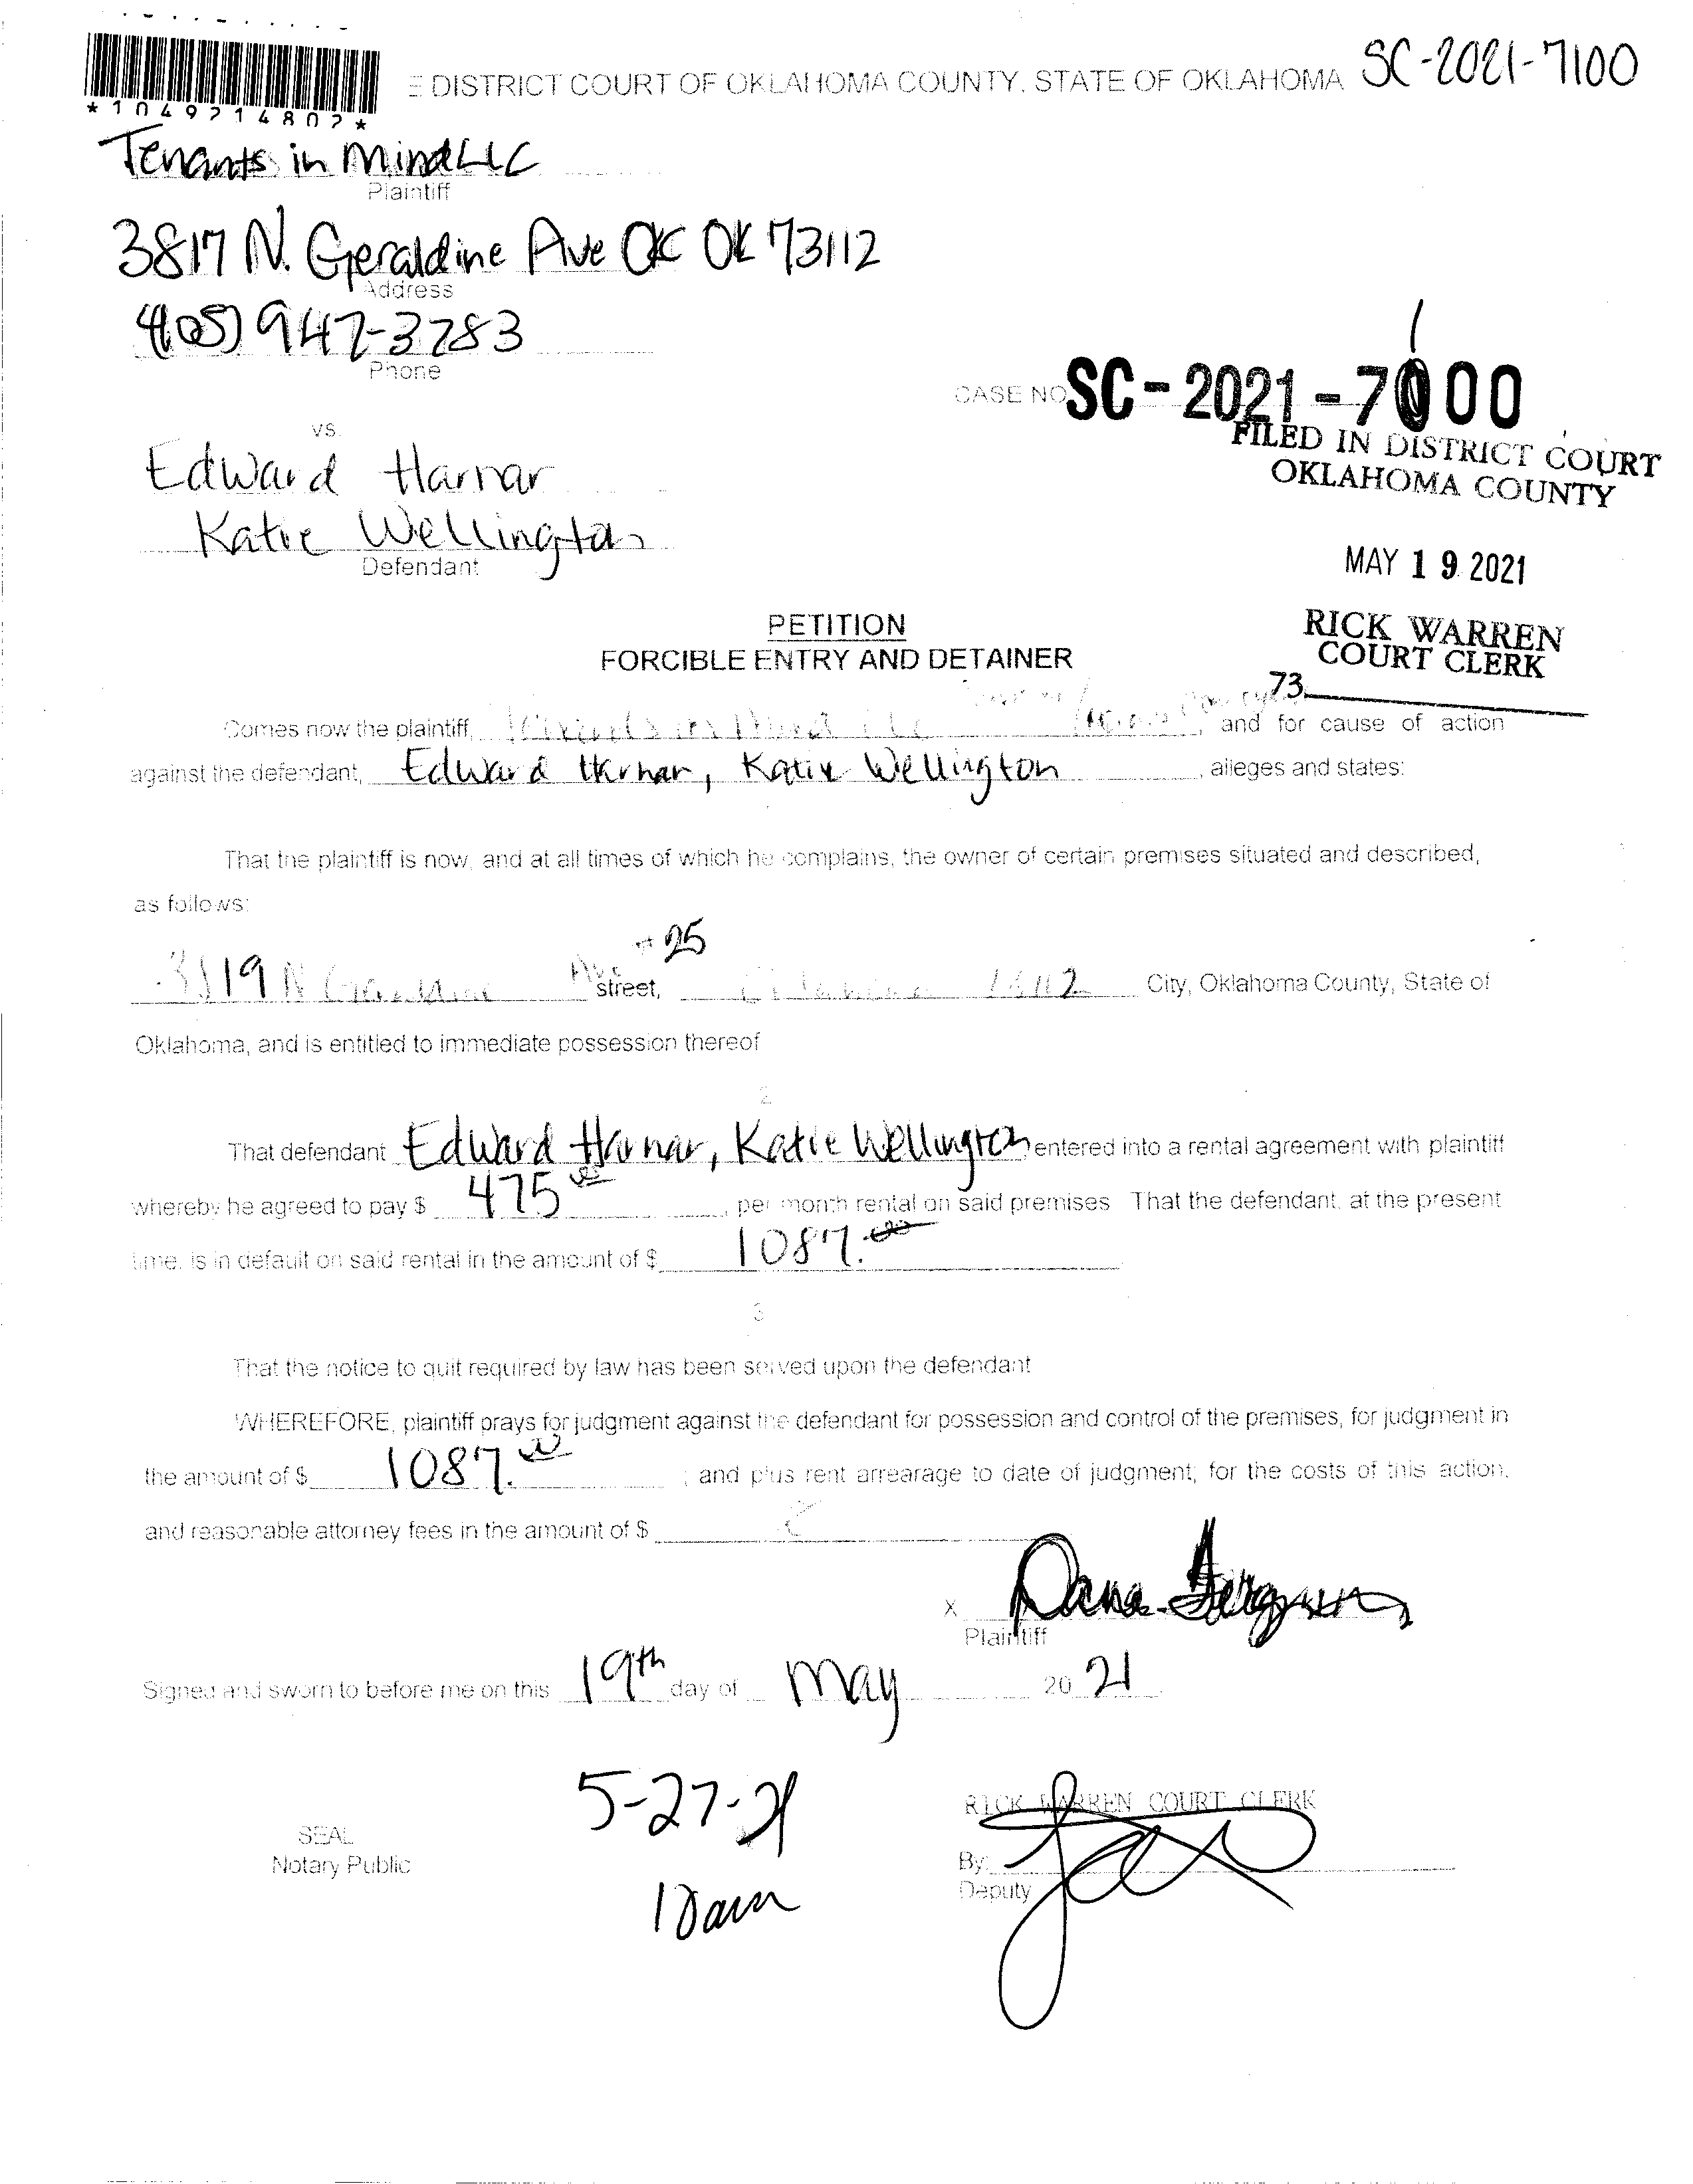 E DISTRICT COURT OF OKLAHOMA COUNTY, STATE OF OKLAHOMA SC-2021-7100
Tenants in Mind LLC
Plaintiff
3817 N. Geraldine Ave OKC OK 73112
Address
(405) 947-3783
Phone
CASE NO SC-2021-7100
FILED IN DISTRICT COURT
OKLAHOMA COUNTY
vs.
Edward Harnar
Katie Wellington
Defendant
MAY 19 2021
RICK WARREN
COURT CLERK
73
PETITION
FORCIBLE ENTRY AND DETAINER
Comes now the plaintiff, Tenants in Mind LLC, and for cause of action
against the defendant, Edward Harnar, Katie Wellington, alleges and states:
That the plaintiff is now, and at all times of which he complains, the owner of certain premises situated and described,
as follows:
N Geraldine Ave #25 street, City, Oklahoma County, State of
Oklahoma, and is entitled to immediate possession thereof
2
That defendant Edward Harnar, Katie Wellington entered into a rental agreement with plaintiff
whereby he agreed to pay $ 475 00, per month rental on said premises That the defendant, at the present
time, is in default on said rental in the amount of $ 1087.00
3
That the notice to quit required by law has been served upon the defendant
WHEREFORE, plaintiff prays for judgment against the defendant for possession and control of the premises, for judgment in
the amount of $ 1087.00 ; and plus rent arrearage to date of judgment; for the costs of this action,
and reasonable attorney fees in the amount of $
X Dana Ferguson
Plaintiff
Signed and sworn to before me on this 19th day of May 20 21
5-27-21
10am
RICK WARREN COURT CLERK
SEAL
Notary Public
By:
Deputy